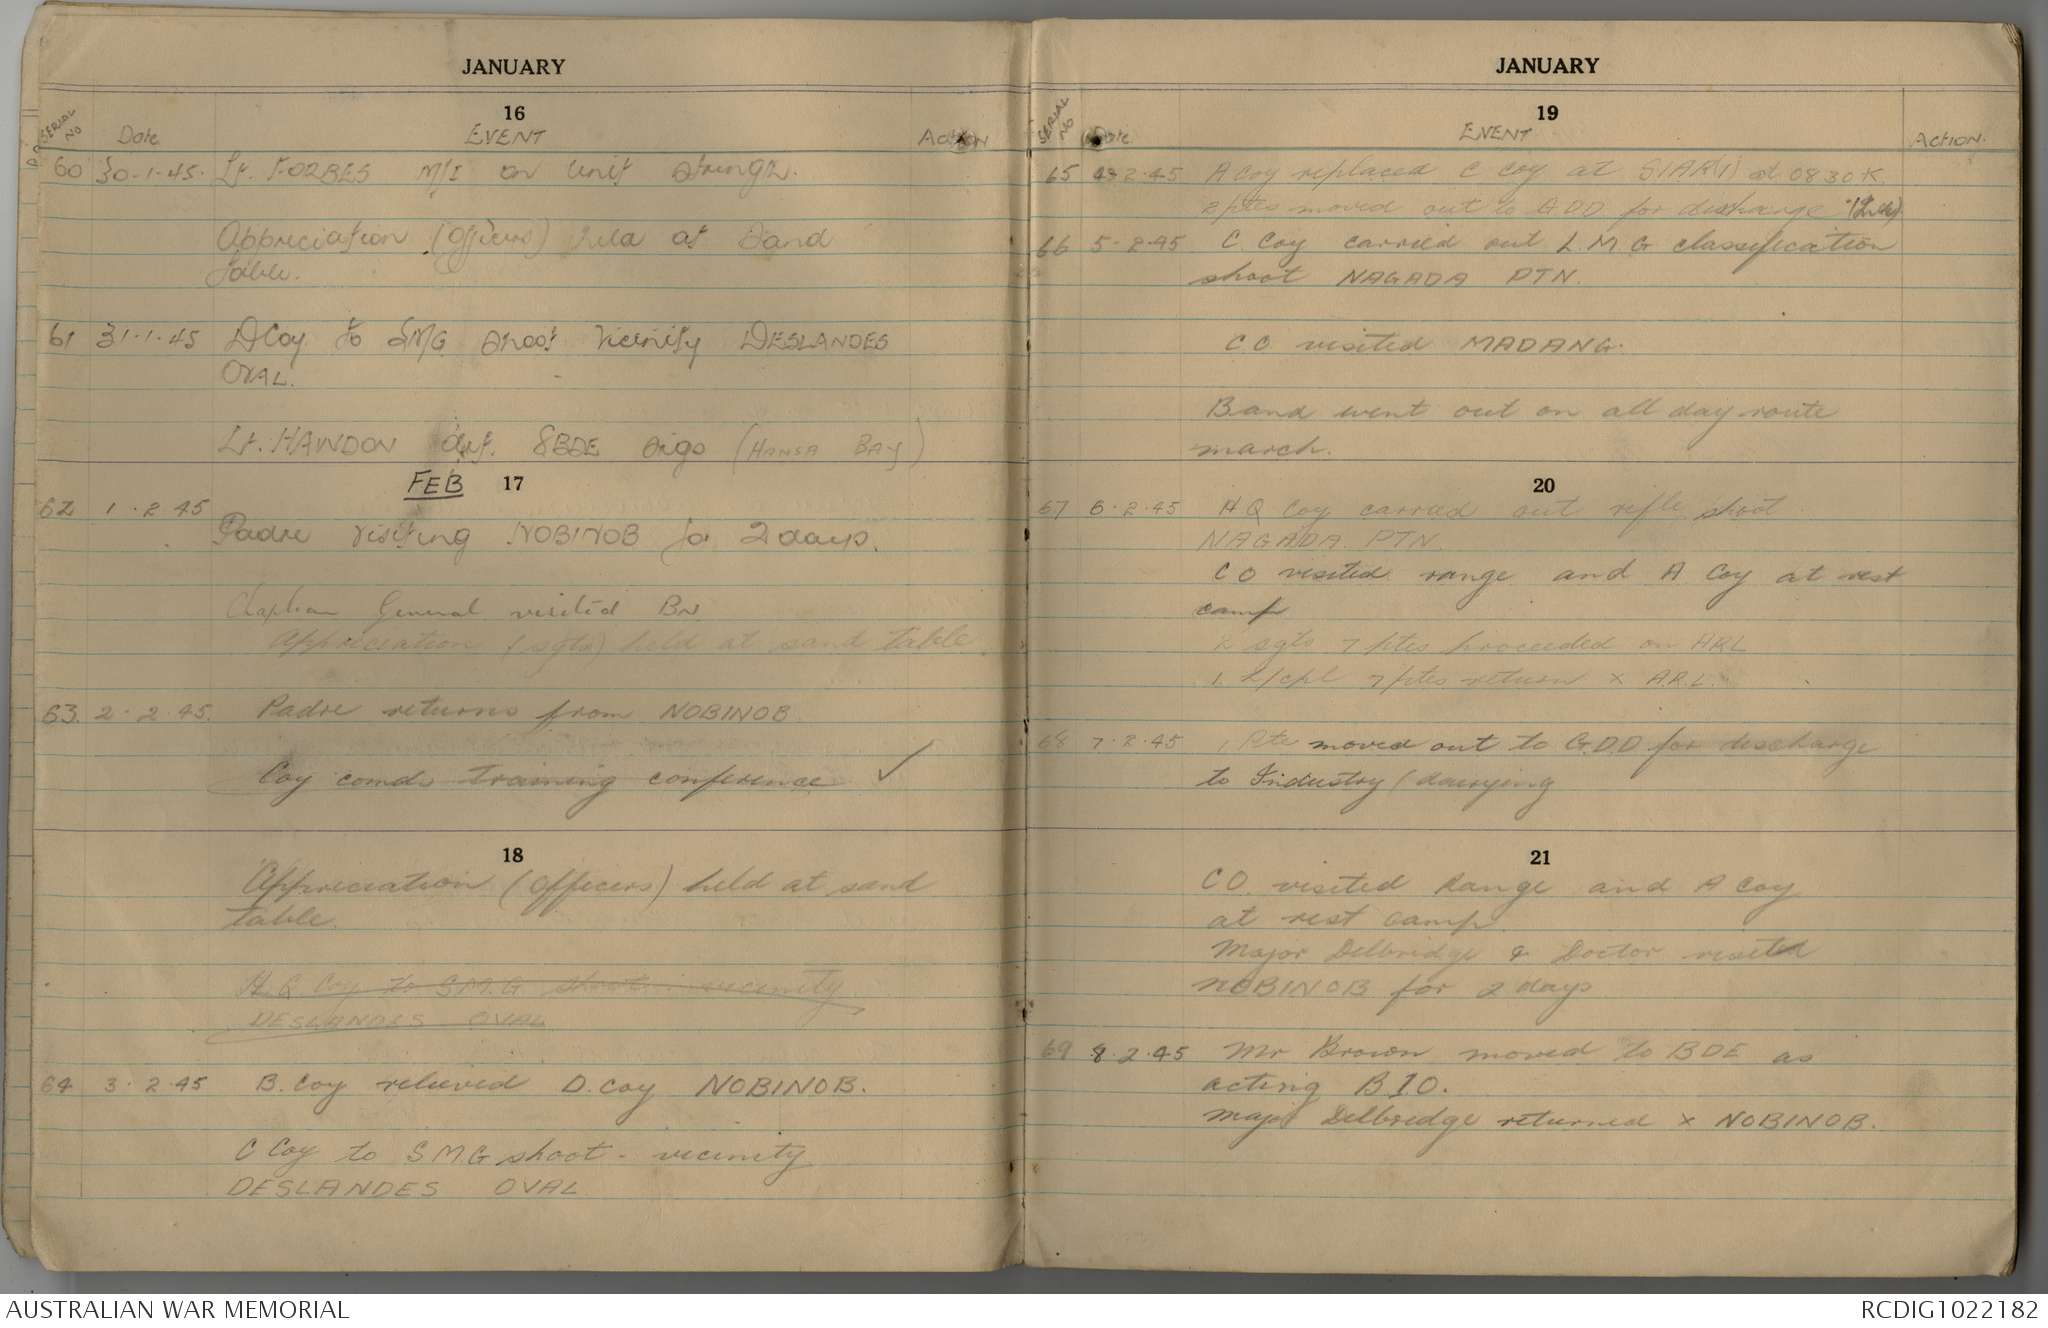 JANUARY
16
SERIAL NO Date EVENT Action
60 30-1-45. Lt. FORBES M/I on Unit Strength.
Appreciation (Officers) held at Sand
Table.
61 31-1-45 D Coy to SMG shoot vicinity DESLANDES
OVAL.
Lt. HAWDON att. 8BDE sigs (HANSA BAY)
FEB 17
62 1.2.45
Padre visiting NOBINOB for 2 days.
Chaplain General visited Bn
Appreciation (sgts) held at sand table.
63. 2.2.45. Padre returns from NOBINOB
Coy comds training conference ✓
18
Appreciation (Officers) held at sand
table.
H.Q. Coy to S.M.G shoot vicinity
DESLANDES OVAL
64 3.2.45 B. Coy relieved D. Coy NOBINOB.
C Coy to SMG shoot - vicinity
DESLANDES OVAL
JANUARY
19
SERIAL NO Date EVENT Action.
65 4.2.45 A Coy replaced C Coy at SIAR(1) at 0830K
2 ptes moved out to GDD for discharge
66 5.2.45 C. Coy carried out L.M.G classification
shoot NAGADA PTN.
C.O. visited MADANG.
Band went out on all day route
march.
20
67 6.2.45 HQ Coy carried out rifle shoot
NAGADA PTN.
CO visited range and A Coy at rest
camp
2 sgts 7 ptes proceeded on ARL
1 L/cpl 7 ptes return x A.R.L.
68 7.2.45 1 Pte moved out to G.D.D for discharge
to Industry (dairying
21
CO. visited Range and A Coy
at rest camp
Major Delbridge & Doctor visited
NOBINOB for 2 days
69 8.2.45 Mr Brown moved to BDE as
acting B.I.O.
Major Delbridge returned x NOBINOB.
AUSTRALIAN WAR MEMORIAL
RCDIG1022182